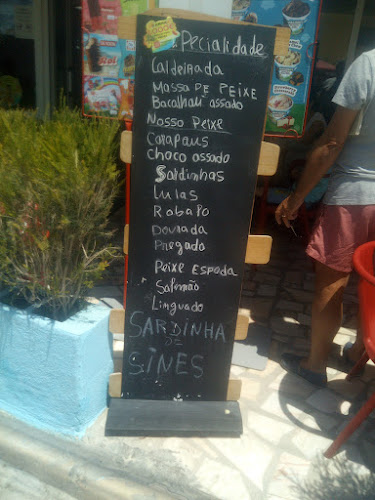 Especialidade
Caldeirada
Massa DE PEIXE
Bacalhau assado
Nosso Peixe
Carapaus
Choco assado
Sardinhas
Lulas
Robalo
Dourada
Pregado
Peixe Espada
Salmão
Linguado
SARDINHA
DE
SINES